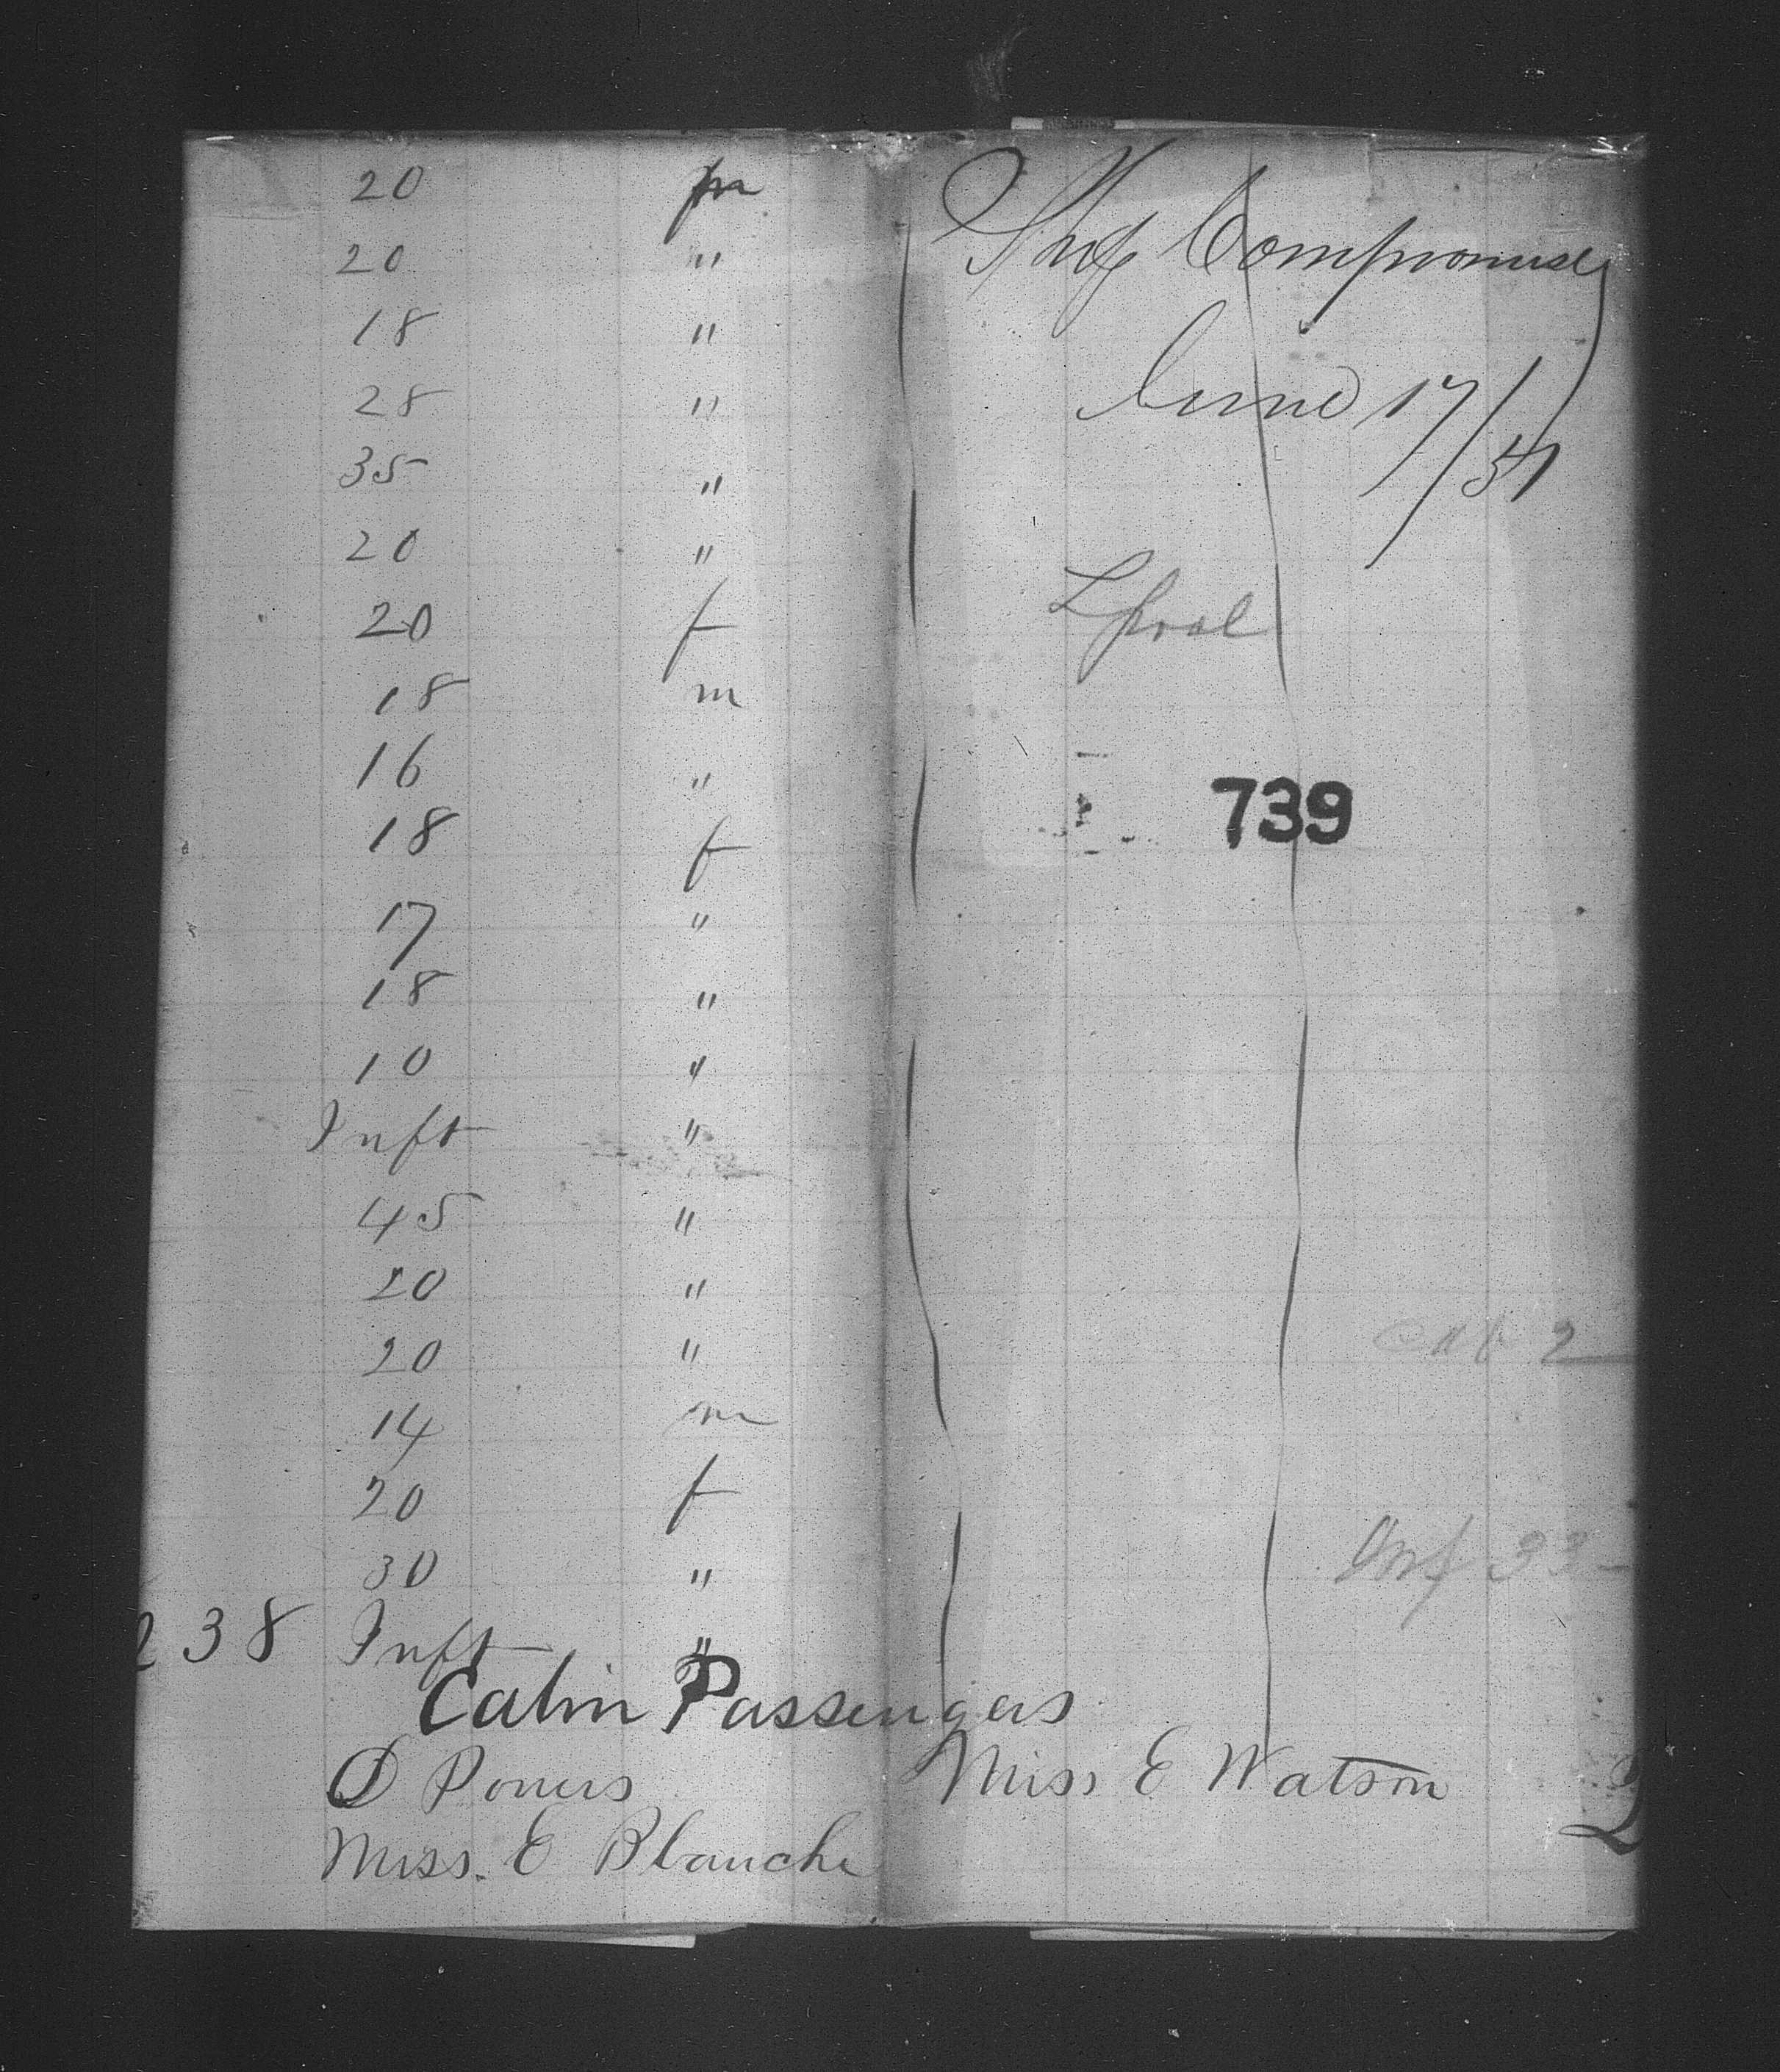 20 m
20 "
18 "
28 "
35 "
20 "
20 f
18 m
16 "
18 f
17 "
18 "
10 "
Inft "
45 "
20 "
20 "
14 m
20 f
30 "
238 Inft "
Cabin Passengers
D Powers Miss E Watson
Miss. E Blanche
Ship Compromise
June 17/51
Lpool
739
cab 2
Inf 33